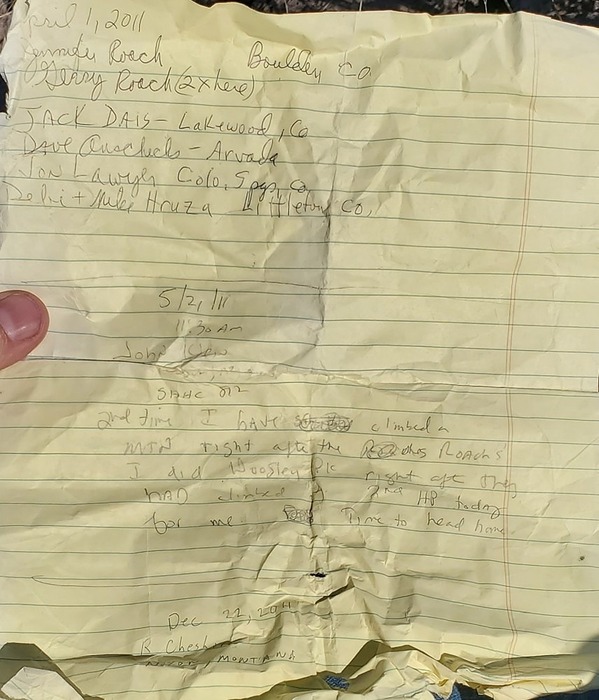 April 1, 2011
Jennifer Roach Boulder Co
Gerry Roach (2x here)
JACK DAIS - Lakewood, Co
Dave - Arvada
Jon Lawyer Colo. Spgs, Co
+ Mike Hruza Littleton, Co.
5/21/11
11:30 AM
John
2nd time I have climbed a
MTN right after the Roachs
I did Pk right aft they
HAD climbed it 2nd HP today
for me. Time to head home
Dec 22, 2011
R Chesh
MONTANA